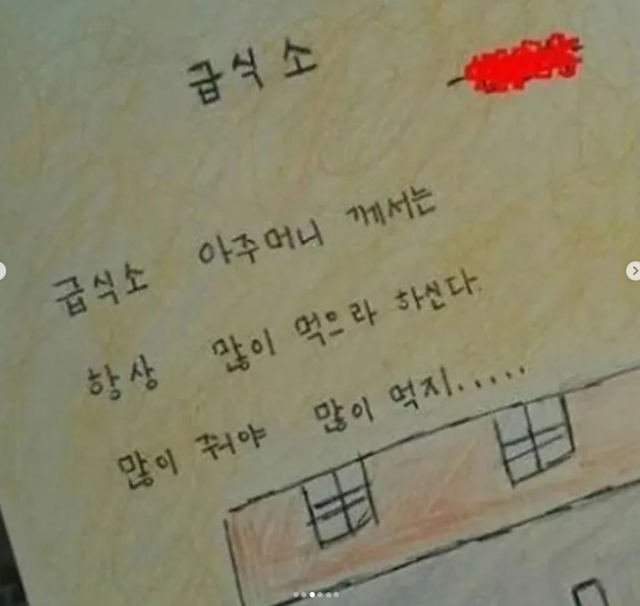 급식소
급식소 아주머니 께서는
항상 많이 먹으라 하신다.
많이 줘야 많이 먹지.....